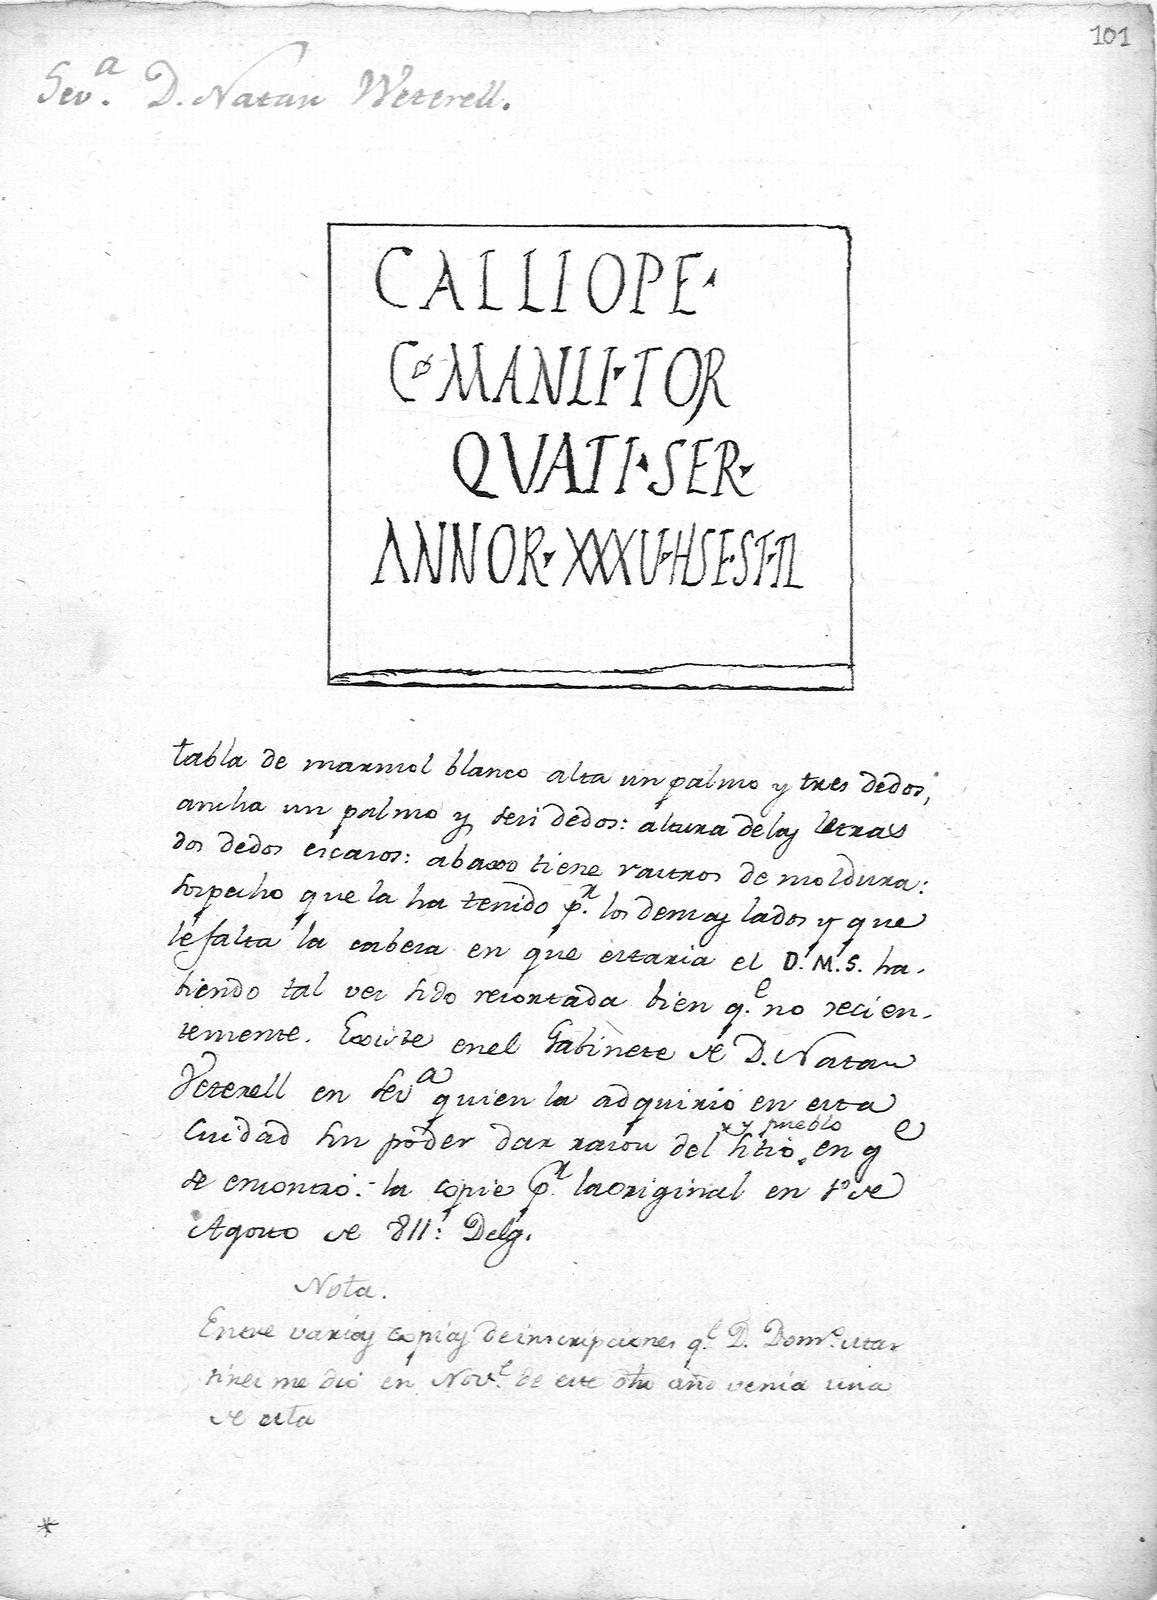 101
Sev.ª D. Natan Weterell.
CALLIOPE·
C·MANLI·TOR
QVATI·SER·
ANNOR·XXXV·HSE·ST·TL
tabla de marmol blanco alta un palmo y tres dedos,
ancha un palmo y seis dedos: altura de las letras
dos dedos escasos: abaxo tiene rastros de moldura:
sospecho que la ha tenido p.r los demas lados y que
le falta la cabeza en que estaria el D.M.S. ha-
biendo tal vez sido recortada bien q.e no recien-
temente. Existe en el Gabinete de D. Natan
Veterell en Sev.ª quien la adquirió en esta
Cuidad sin poder dar razon del sitio
y pueblo
en q.e
se encontró: la copie p.r la original en 1º de
Agosto de 811: Delg.
Nota.
Entre varias copias de inscripciones q.e D. Dom.o Mar
tinez me dió en Nov.e de este dho año venia una
de esta
*